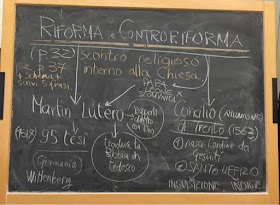 RIFORMA e CONTRORIFORMA
(P.32) scontro religioso
e p 37 interno alla Chiesa.
+ schema
+ scrivi 5 frasi
PAPA
LEONE X
SCOMUNICA
Martin Lutero
rapporto
diretto
con Dio
Concilio
di Trento (1563)
(1517) 95 tesi
Traduce la
Bibbia in
tedesco
1) nasce l'ordine dei
gesuiti
2) SANTO UFFIZIO
INQUISIZIONE INDICE
Germania
Wittenberg